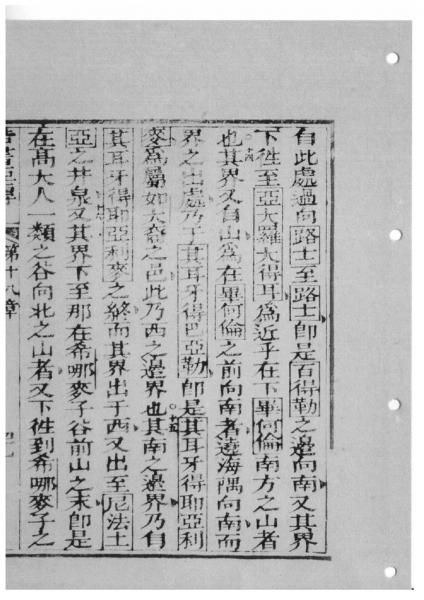 自此處過向路士至路士卽是百得勒之邊向南又其界
下徃至亞大羅大得耳爲近乎在下畢何倫南方之山者
也十四其界又自山爲在畢何倫之前向南者遶海隅向南而
界之出處乃于其耳牙得巴亞勒卽是其耳牙得耶亞利
麥爲屬如大畬之邑此乃西之邊界也十五其南之邊界乃自
其耳牙得耶亞利麥之終而其界出于西又出至尼法土
亞之井泉十六又其界下至那在希哪麥子谷前山之末卽是
在高大人一類之谷向北之山者又下徃到希哪麥子之
第十八章